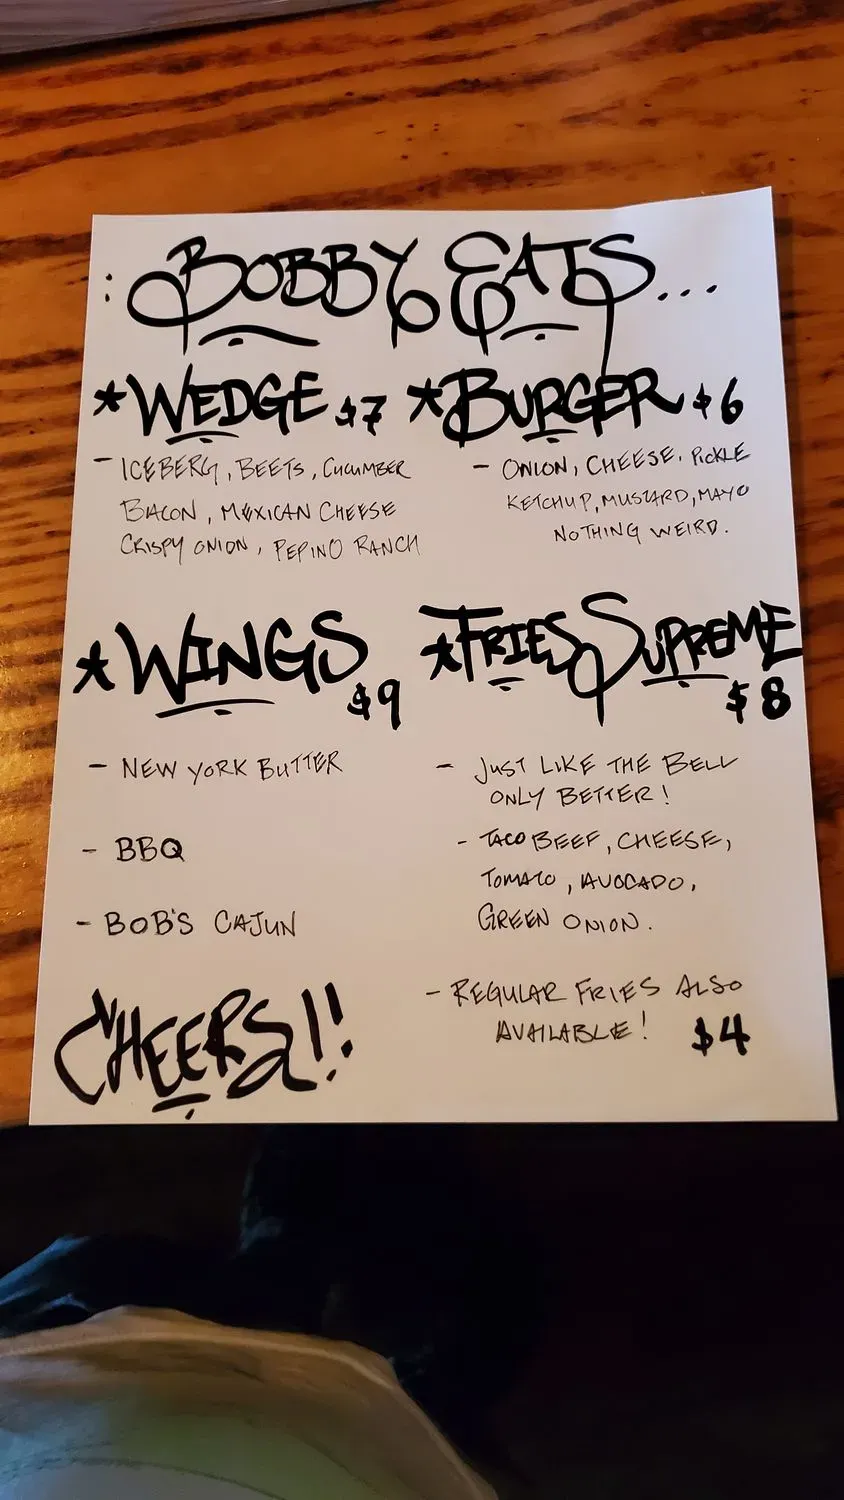 : BOBBY EATS...
* WEDGE $7
- ICEBERG, BEETS, CUCUMBER
BACON, MEXICAN CHEESE
CRISPY ONION, PEPINO RANCH
* BURGER $6
- ONION, CHEESE, PICKLE
KETCHUP, MUSTARD, MAYO
NOTHING WEIRD.
* WINGS $9
- NEW YORK BUTTER
- BBQ
- BOB'S CAJUN
* FRIES SUPREME
$8
- JUST LIKE THE BELL
ONLY BETTER!
- TACO BEEF, CHEESE,
TOMATO, AVOCADO,
GREEN ONION.
- REGULAR FRIES ALSO
AVAILABLE! $4
CHEERS!!